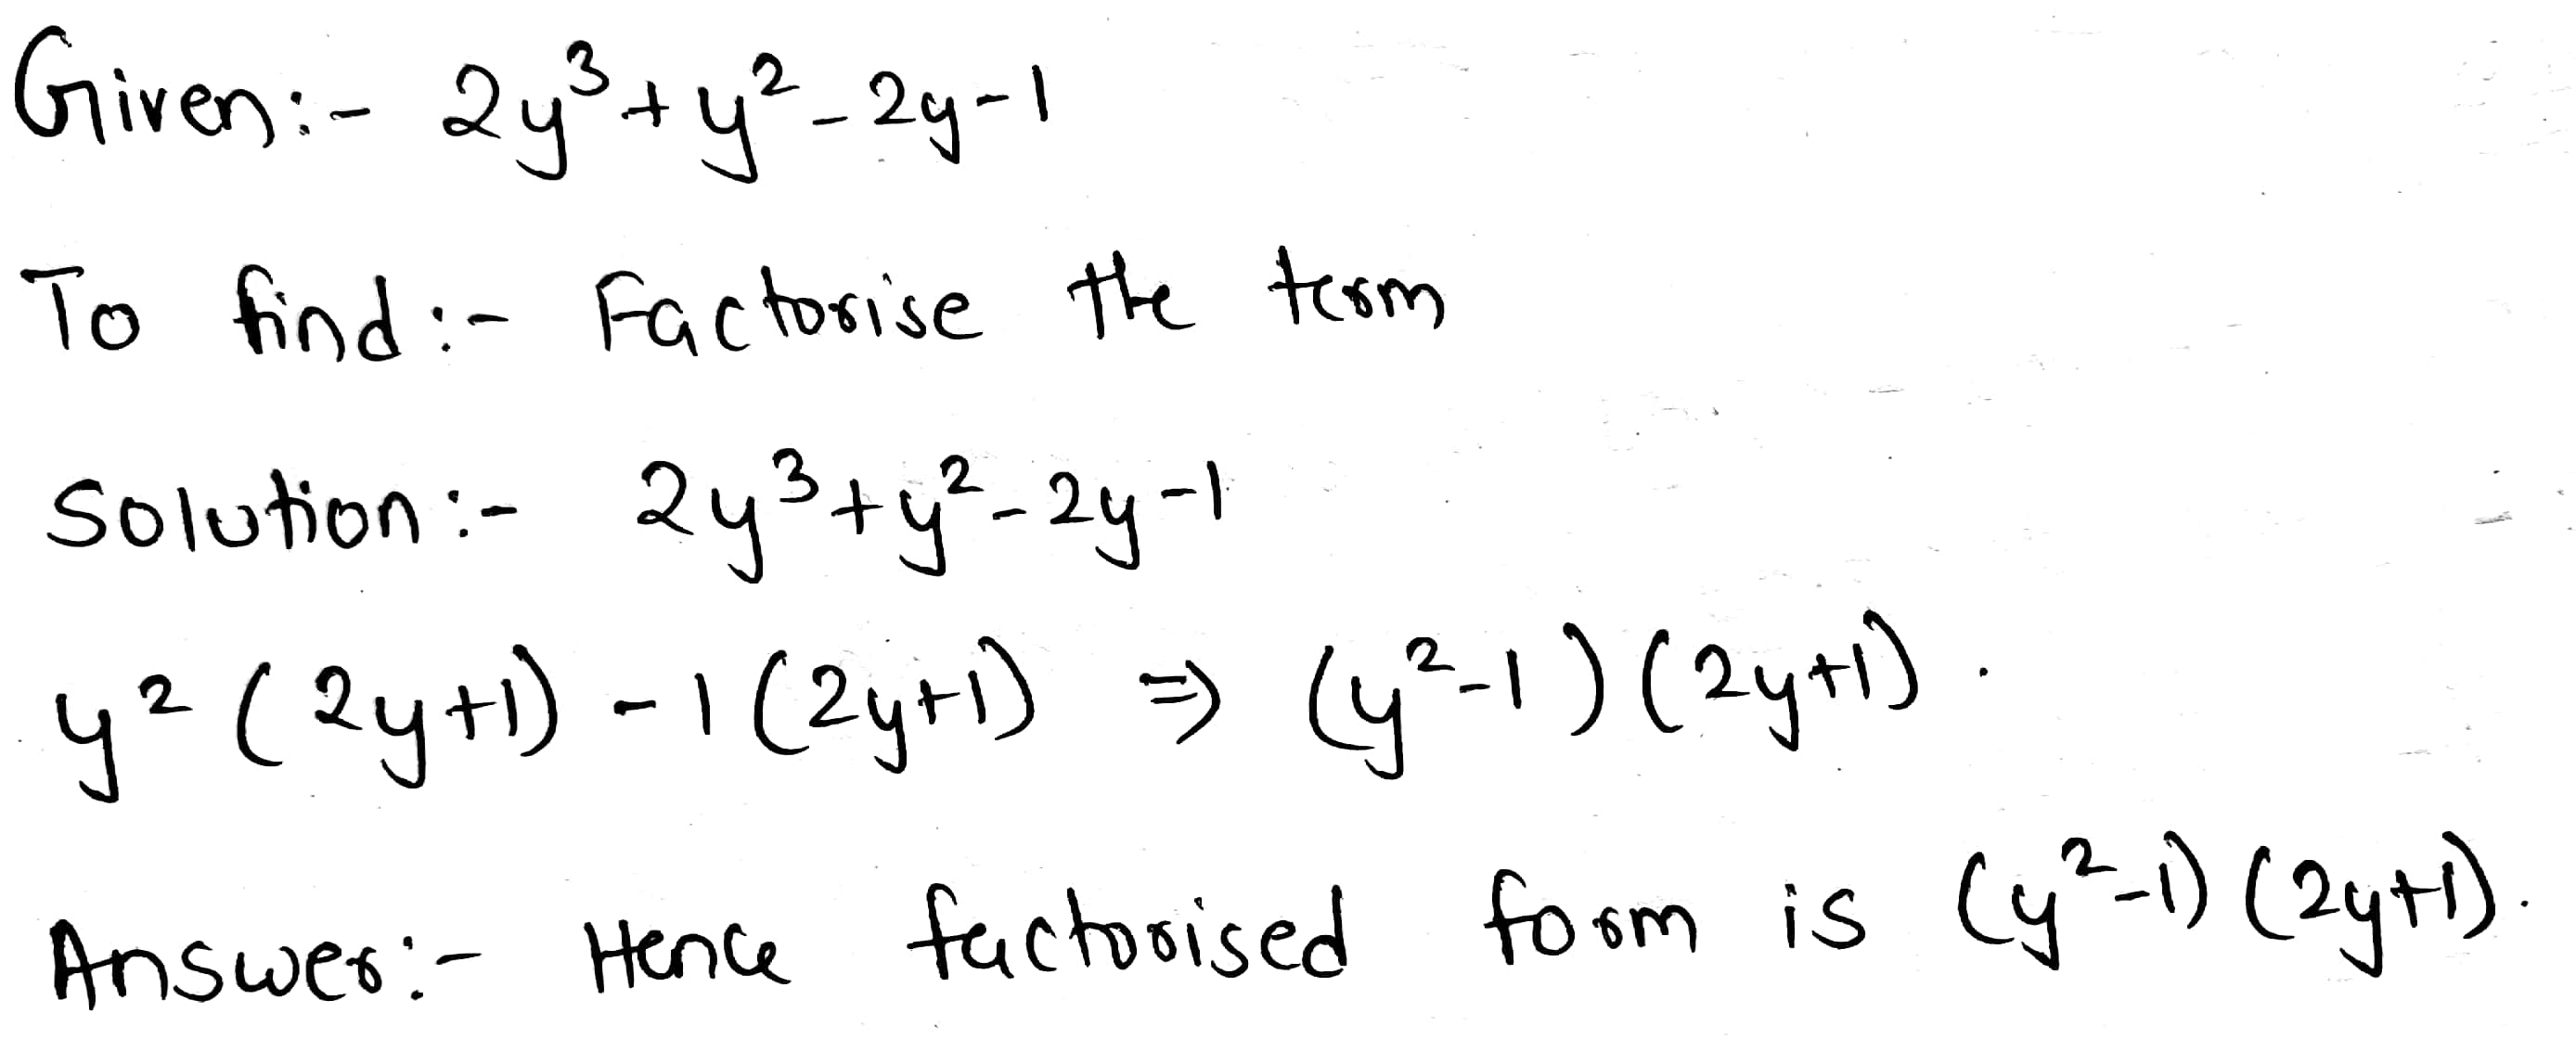 Given:- 2y³+y²-2y-1
To find:- Factorise the term
Solution:- 2y³+y²-2y-1
y²(2y+1)-1(2y+1) ⇒ (y²-1)(2y+1).
Answer:- Hence factorised form is (y²-1)(2y+1).